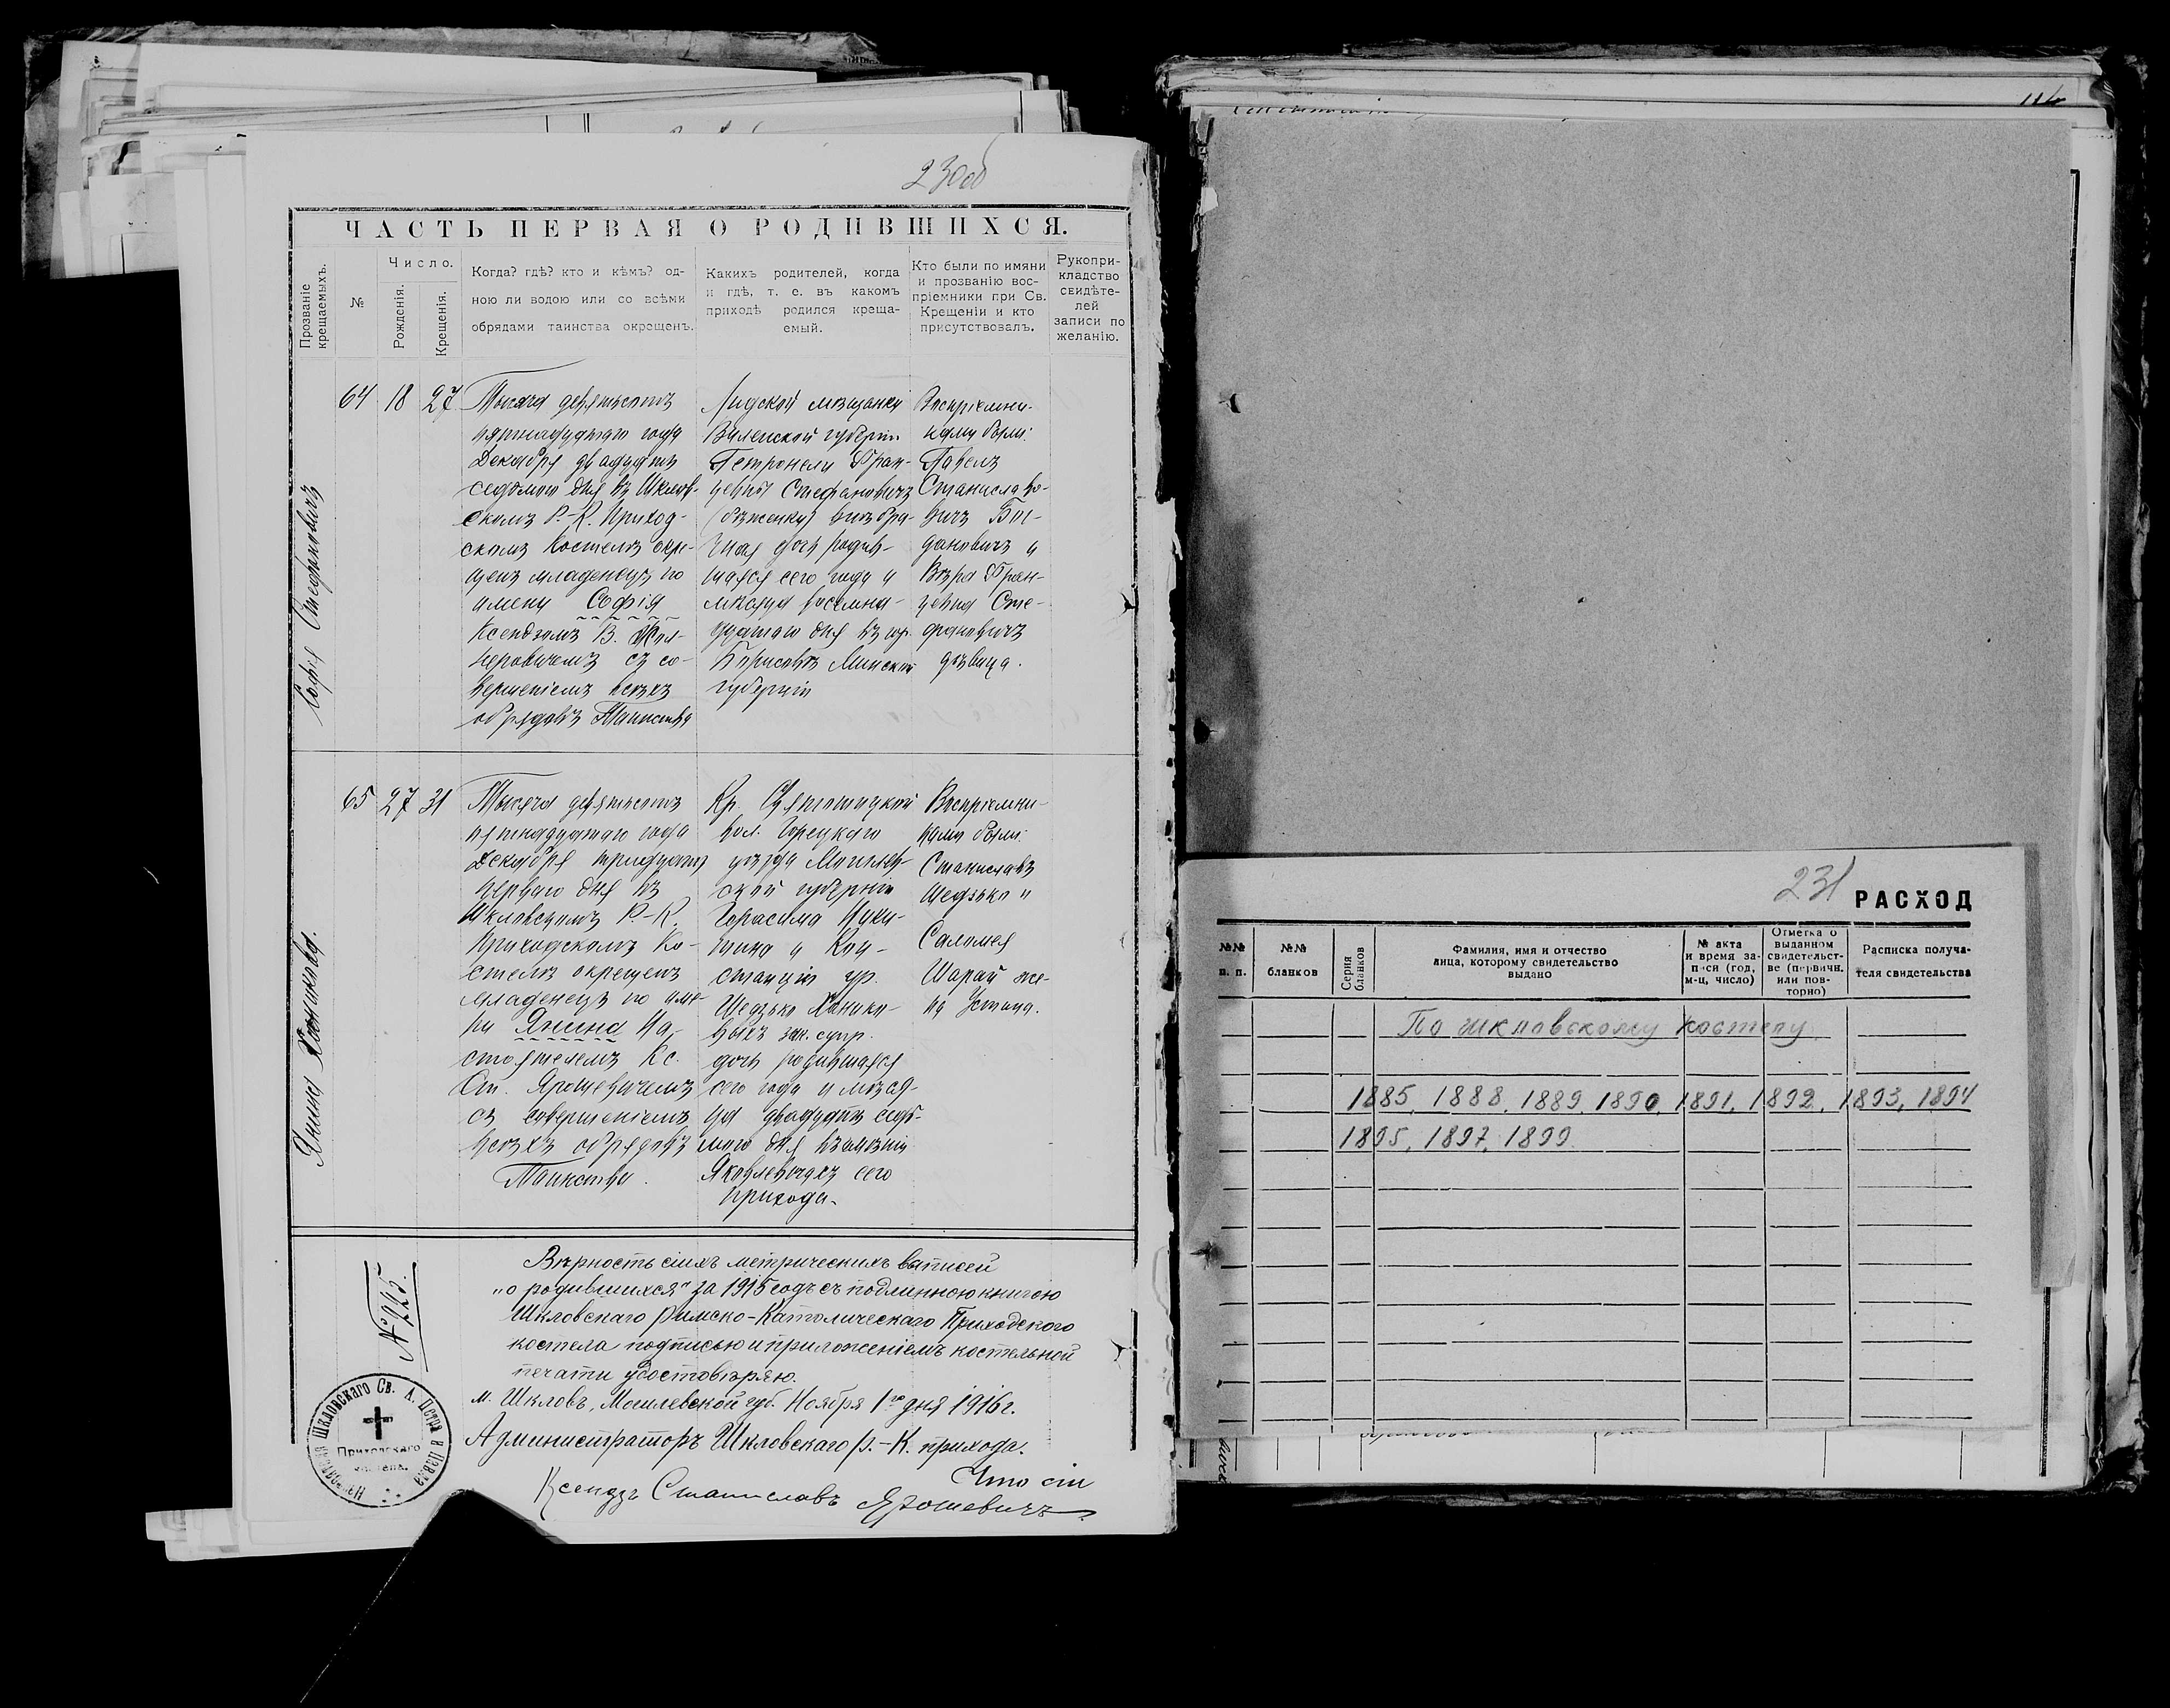 230об
ЧАСТЬ ПЕРВАЯ О РОДИВШИХСЯ.
Прозваніе крещаемыхъ.
№
Число.
Рожденія.
Крещенія.
Когда? гдѣ? кто и кѣмъ? од-
ною ли водою или со всѣми
обрядами таинства окрещенъ.
Какихъ родителей, когда
и гдѣ, т. е. въ какомъ
приходѣ родился креща-
емый.
Кто были по имяни
и прозванію вос-
пріемники при Св.
Крещеніи и кто
присутствовалъ.
Рукопри-
кладство
свидѣте-
лей
записи по
желанію.
Софія Стефановичъ
64 18 27
Тысяча девятьсотъ
пятнадцатаго года
Декабря двадцать
седьмого дня въ Шклов-
скомъ Р.-К. Приход-
скомъ Костелѣ окре-
щенъ младенецъ по
имени Софія
Ксендзомъ В.
съ со-
вершеніемъ всѣхъ
обрядовъ Таинства
Лидской мѣщанки
Виленской губерніи
Петронели Фран-
цевны Стефановичъ
(бѣженки) внѣбра-
чная дочь родив-
шаяся сего года и
мѣсяца восемна-
дцатаго дня въ гор.
Борисовѣ Минской
губерніи
Воспріемни-
ками были:
Павелъ
Станиславо-
вичъ Бог-
дановичъ и
Вѣра Фран-
цевна Сте-
фановичъ
дѣвица.
Янина Хоникова.
65 27 31
Тысяча девятьсотъ
пятнадцатаго года
Декабря тридцать
перваго дня въ
Шкловскомъ Р.-К.
Приходскомъ Ко-
стелѣ окрещенъ
младенецъ по име-
ни Янина На-
стоятелемъ Кс.
Ст. Ярошевичемъ
съ совершеніемъ
всѣхъ обрядовъ
Таинства.
Кр.
вол. Горецкаго
уѣзда Могилев-
ской губерніи
Герасима Ники-
тина и Кон-
станціи ур.
Шедзько Хонико-
выхъ зак. супр.
дочь родившаяся
сего года и мѣся-
ца двадцать седь-
мого дня въ имѣніи
Яковлевичахъ сего
прихода.
Воспріемни-
ками были:
Станиславъ
Шедзько и
Саломея
Шарай же-
на Устина.
№ 225.
Вѣрность сихъ метрическихъ записей
„о родившихся" за 1915 годъ съ подлинною книгою
Шкловскаго Римско-Католическаго Приходского
костела подписью и приложеніемъ костельной
печати удостовѣряю.
м. Шкловъ, Могилевской губ. Ноября 1го дня 1916 г.
Администраторъ Шкловскаго Р.-К. прихода.
Ксендзъ Станиславъ Ярошевичъ.
Шкловскаго Св. А. Петра и Павла
Приходскаго
231
РАСХОД
№№
п. п.
№№
бланков
Серия
бланков
Фамилия, имя и отчество
лица, которому свидетельство
выдано
№ акта
и время за-
писи (год,
м-ц, число)
Отметка о
выданном
свидетельст-
ве (первичн.
или пов-
торно)
Расписка получа-
теля свидетельства
По шкловскому костелу
1885, 1888, 1889, 1890, 1891, 1892, 1893, 1894
1895, 1897, 1899